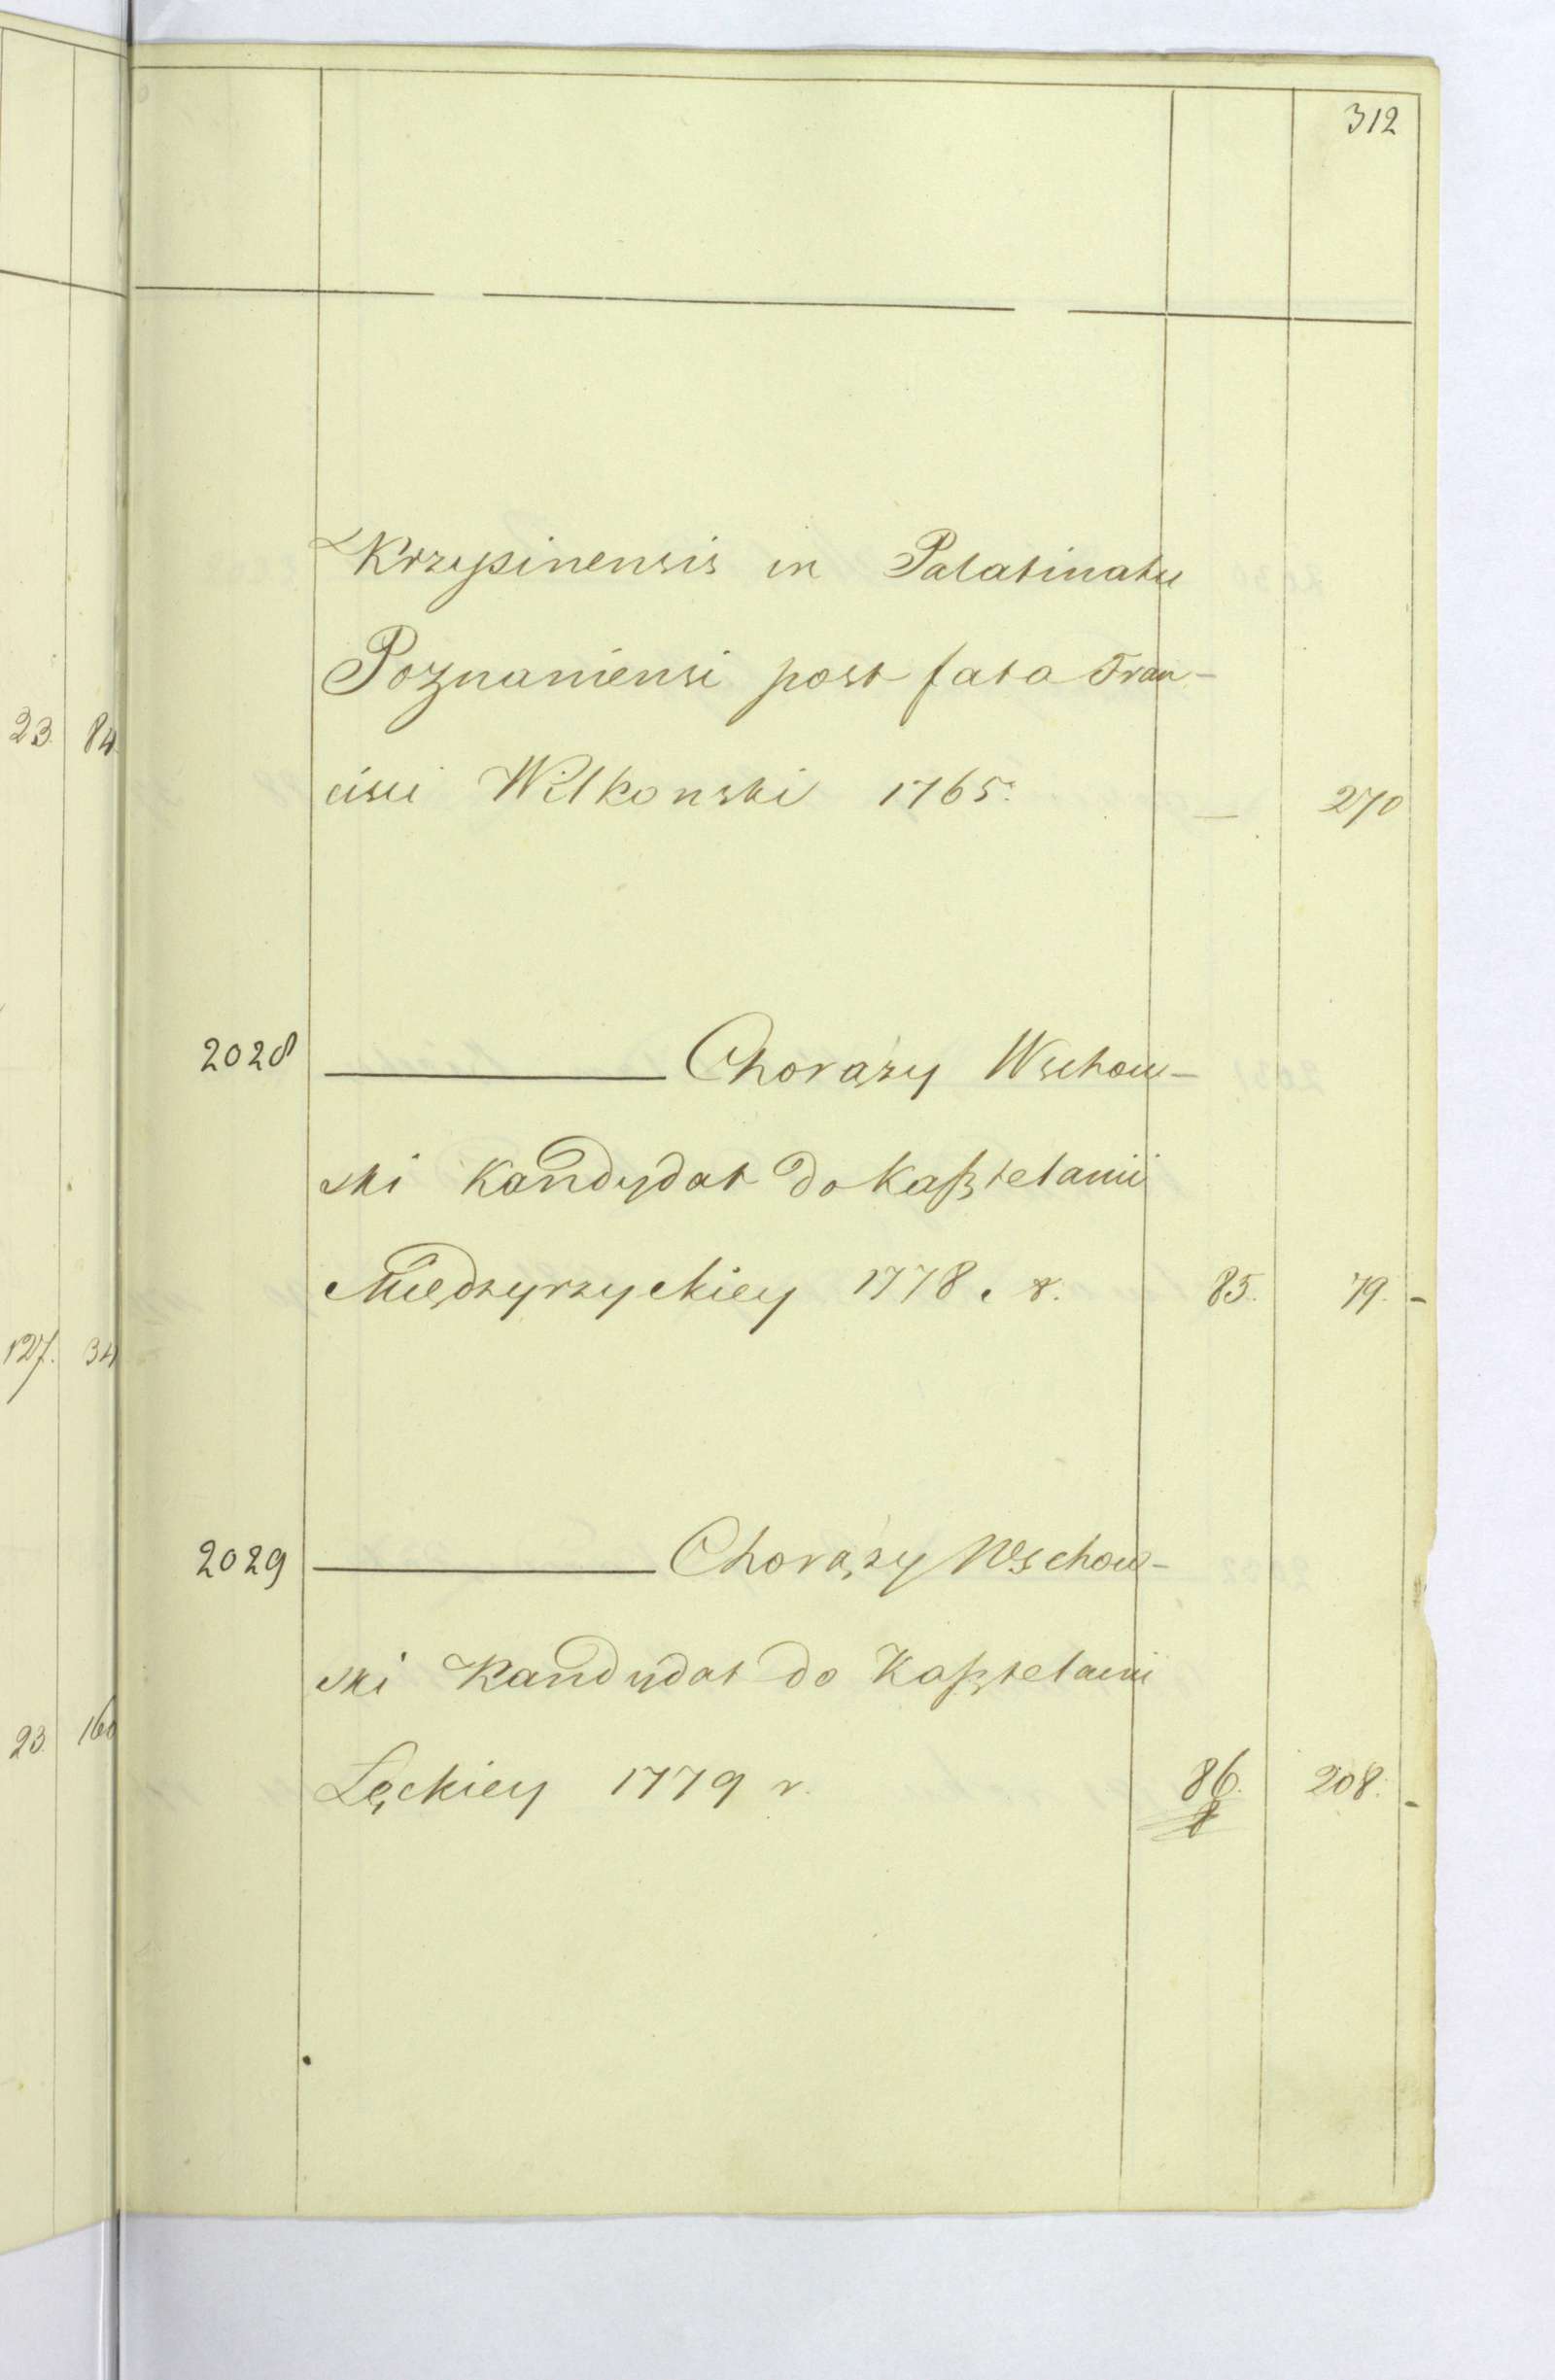 312
Krzypinensis in Palatinatu
Poznaniensi post fata Fran-
cisci Wilkonski 1765. — 270
2028 ——— Chorąży Wschow-
ski Kandydat do Kasztelanii
Międzyrzyckiey 1778. r. 85. 79. -
2029 ——— Chorąży Wschow-
ski Kandydat do Kasztelanii
Lęckiey 1779 r. 86. 208. -
23. 84.
127. 34
23. 160